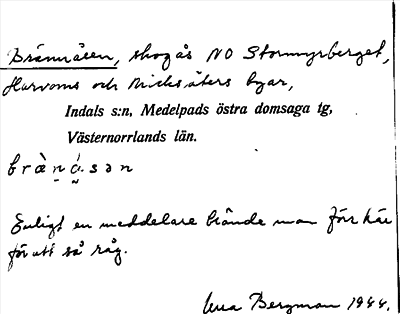 Brännåsen, skogås NO Stormyrberget,
Harvoms och Nicksäters byar,
Indals s:n, Medelpads östra domsaga tg,
Västernorrlands län.
Enligt en meddelare brände man förr här
för att så råg.
Bergman 1944.